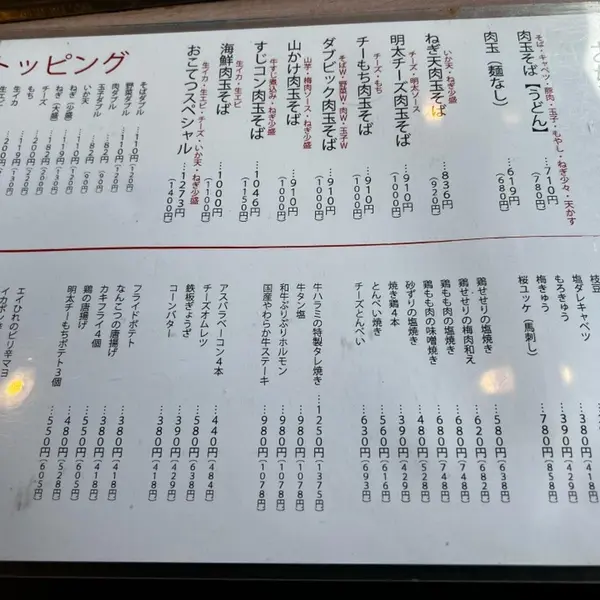 肉玉そば【うどん】 …710円(780円)
そば・キャベツ・豚肉・玉子・もやし・ねぎ少々・天かす
肉玉(麺なし) …619円(680円)
ねぎ天肉玉そば …836円(920円)
いか天・ねぎ少盛
明太チーズ肉玉そば …910円(1000円)
チーズ・明太ソース
チーもち肉玉そば …910円(1000円)
チーズ・もち
ダブビック肉玉そば …910円(1000円)
そばW・野菜W・肉W・玉子W
山かけ肉玉そば …910円(1000円)
山芋・梅肉ソース・ねぎ少盛
すじコン肉玉そば …1046円(1150円)
牛すじ煮込み・ねぎ少盛
海鮮肉玉そば …1000円(1100円)
生イカ・生エビ
おこてつスペシャル …1273円(1400円)
生イカ・生エビ・チーズ・いか天・ねぎ少盛
トッピング
そばダブル …110円(120円)
野菜ダブル …110円(120円)
肉ダブル
玉子ダブル …82円(90円)
いか天
ねぎ(少盛)
ねぎ(大盛)
チーズ
もち
生イカ
生エビ
枝豆
塩ダレキャベツ …380円(418円)
もろきゅう
梅きゅう
桜ユッケ(馬刺し) …780円(858円)
鶏せせりの塩焼き …580円(638円)
鶏せせりの梅肉和え …620円(682円)
鶏もも肉の塩焼き …680円(748円)
鶏もも肉の味噌焼き …680円(748円)
砂ずりの塩焼き …480円(528円)
焼き鶏4本 …390円(429円)
とんぺい焼き …560円(616円)
チーズとんぺい …630円(693円)
牛ハラミの特製タレ焼き …1250円(1375円)
牛タン塩 …980円(1078円)
和牛ぷりぷりホルモン …980円(1078円)
国産やわらか牛ステーキ …980円(1078円)
アスパラベーコン4本 …440円(484円)
チーズオムレツ …580円(638円)
鉄板ぎょうざ …390円(429円)
コーンバター …380円(418円)
フライドポテト …380円(418円)
なんこつの唐揚げ …380円(418円)
カキフライ4個 …550円(605円)
鶏の唐揚げ …480円(528円)
明太チーもちポテト3個 …550円(605円)
エイひれのピリ辛マヨ